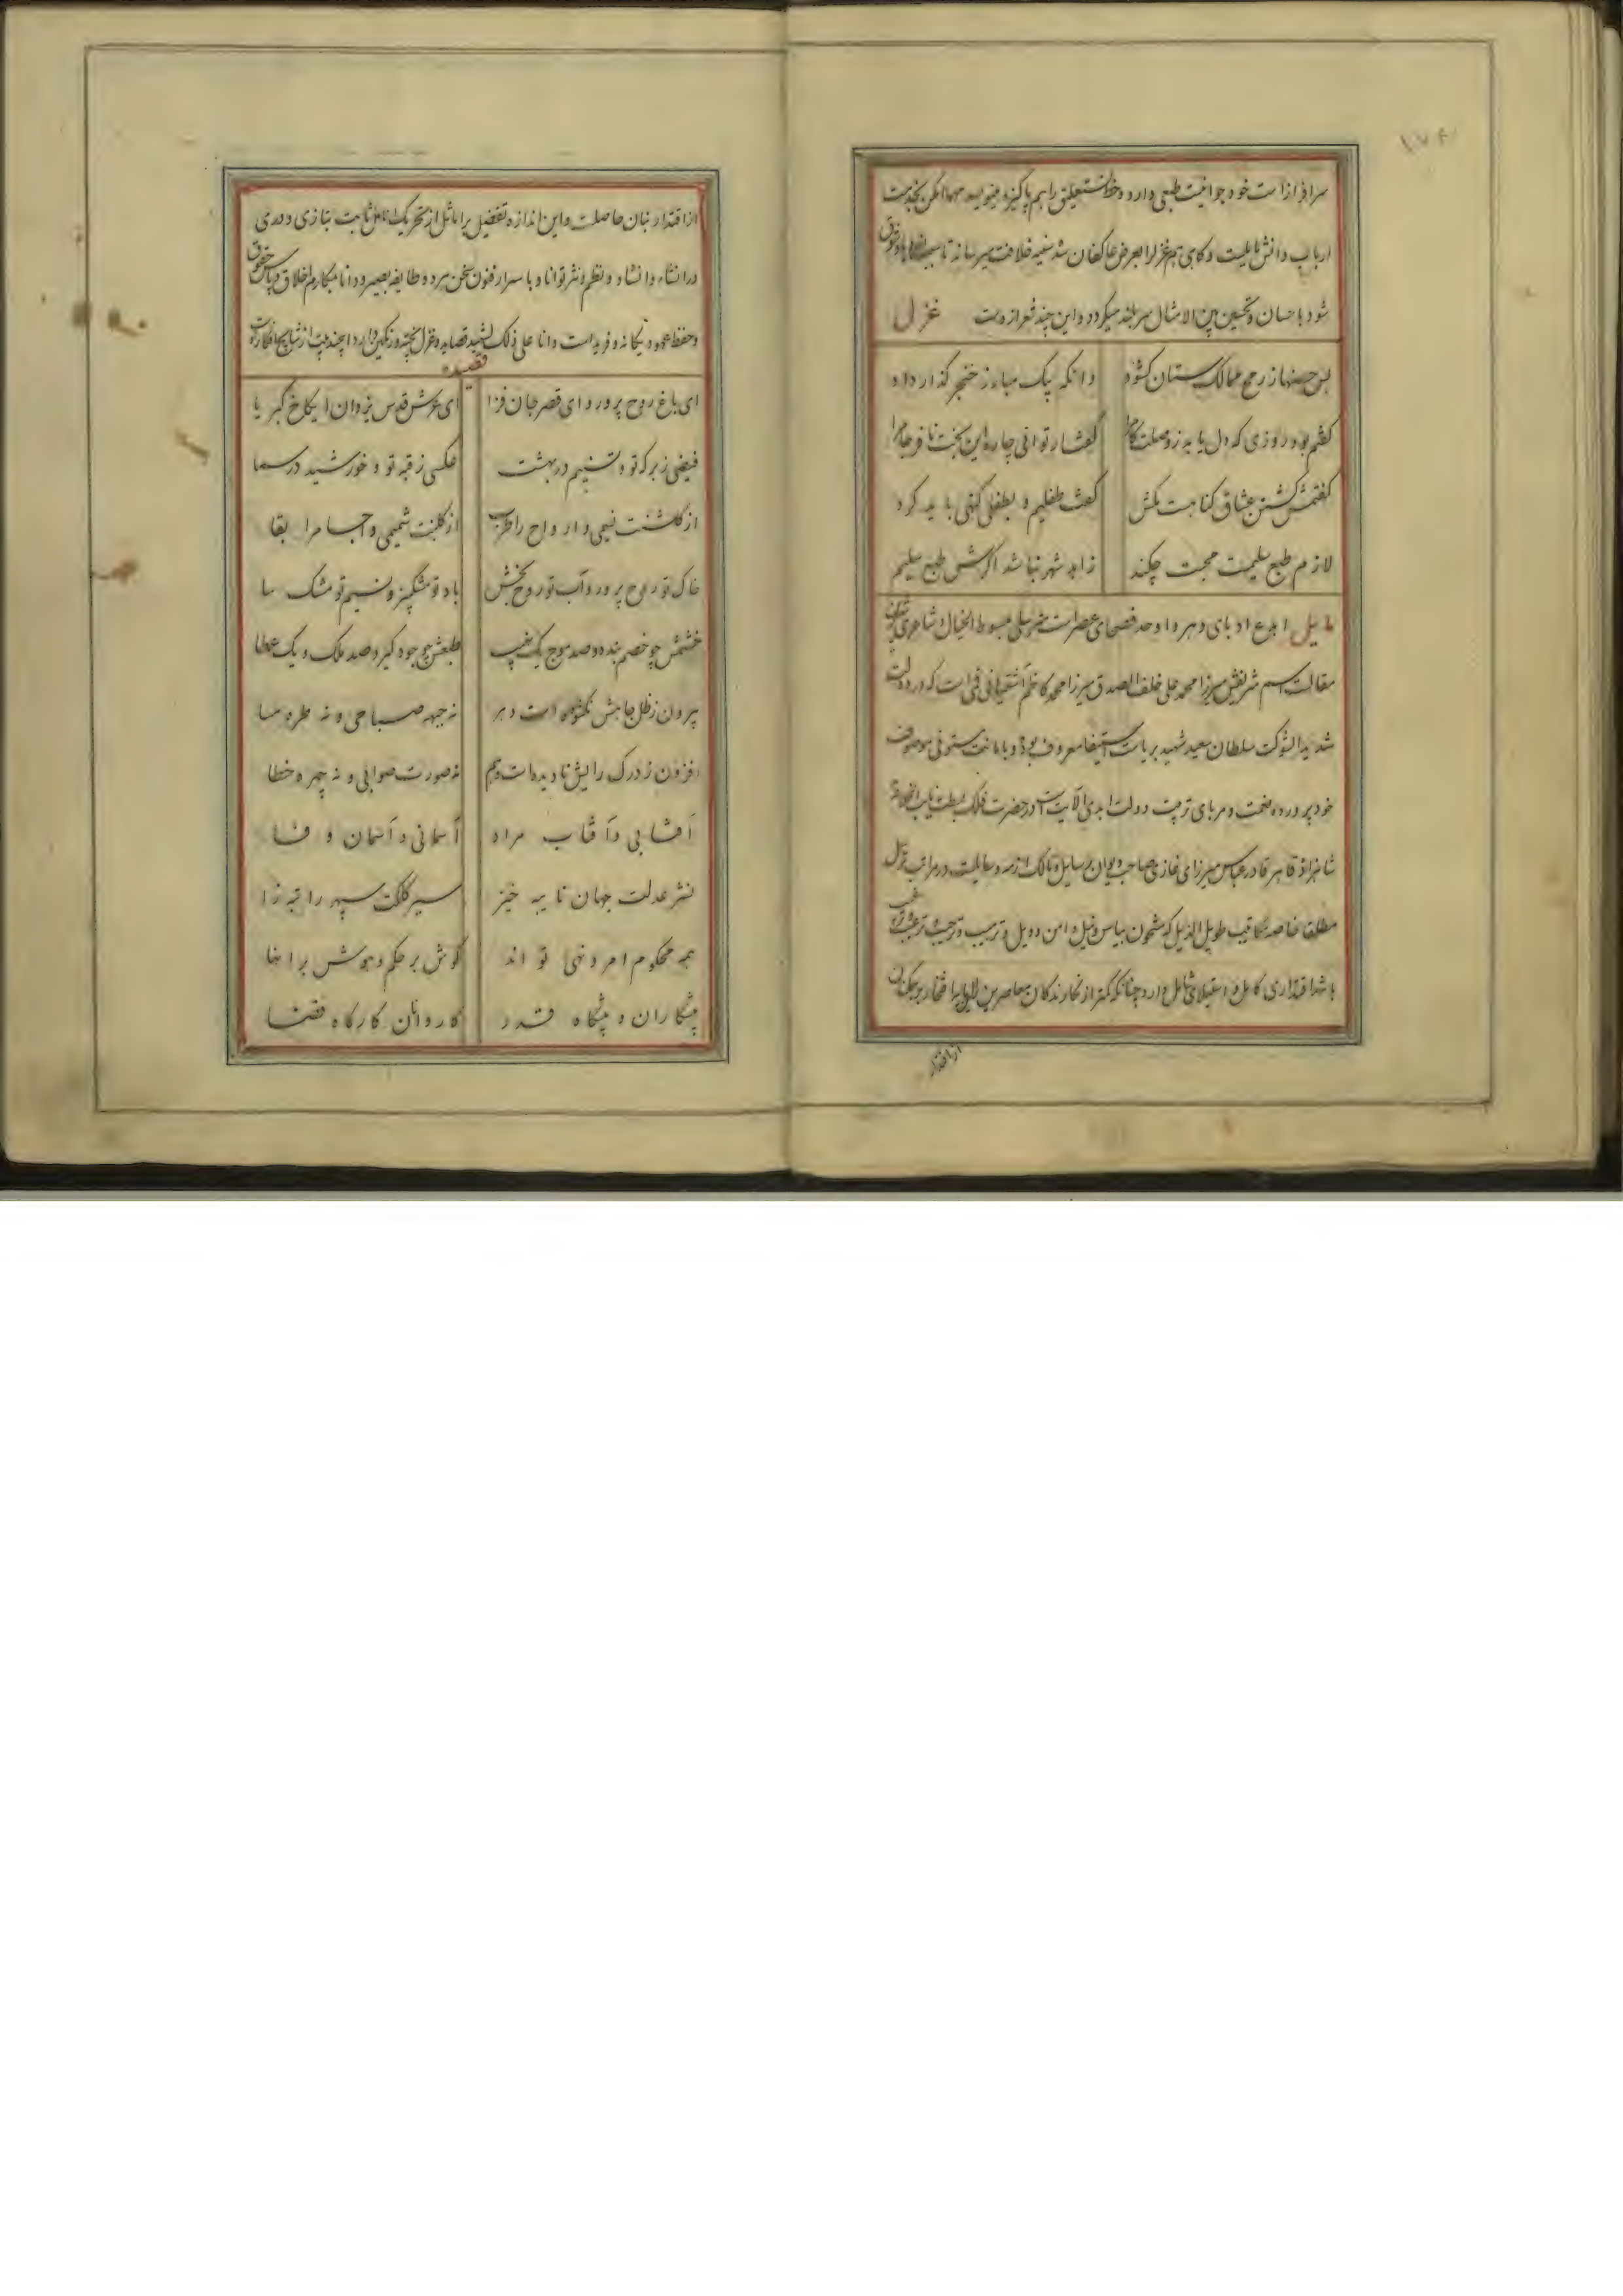 ۱۷۴
سرافراز است خود جوانیست طبعی دارد و خط نستعلیق را هم پاکیزه مینویسد مهما امکن بخدمت
ارباب دانش مایلست و گاهی هم غزلرا بعرض عاکفان سده سنیه خلافت میرساند تا
شود باحسان و تحسین بین الامثال سربلند میگردد و این چند شعر ازوست غزل
بس حصنها ز رمح ممالک ستان گشود
وانگه بیک مبارز خنجر گذار داد
گفتم بود روزی که دل یابد ز وصلت کام را
گفتا ر توانی چاره این بخت نافرجام را
گفتمش کشتن عشاق گناهست مکش
گفت طفلیم و بطفلی گنهی باید کرد
لازم طبع سلیمست محبت چکند
زاهد شهر نباشد اگرش طبع سلیم
مایل ابدع ادبای دهر و اوحد فصحای عصر است مبسوط الخیال شاعری
مقالت اسم شریفش میرزا محمد علی خلف الصدق میرزا محمد کاظم آشتیانی است که در دولت
شدید الشوکت سلطان سعید شهید بریاست استیفا معروف بوده و بامانت مستوفی موصوف
خود پرورده نعمت و مربای تربیت دولت ابدی الآیت است در حضرت فلک بسطت نایب الخلافة
شاهزاده قاهر قادر عباس میرزای غازی صاحب دیوان رسایل و مالک ازمه وسایلست در مراتب ترسل
مطلقا خاصه مکاتیب طویل الذیل که مشحون بیاس و نیل و امن و ویل و ترتیب و ترحیب
باشد اقتداری کامل و استیلای شامل دارد چنانکه کمتر از نگارندگان معاصرین را
از اقتدار
از اقتدار بنان حاصلست و این اندازه تفضیل بر اماثل از تحریک انامل ثابت بتازی و دری
در انشاء و انشاد و نظم و نثر توانا و با سرار فنون سخن هر دو طایفه بصیر و دانا بمکارم اخلاق و پاس حقوق
و حفظ عهود یگانه و فرید است و انا علی ذلک لشهید قصاید و غزل پخته و رنگین دارد این چند بیت از نتایج افکار اوست
قصیده
ای باغ روح پرور و ای قصر جان فزا
ای عرش قدس یزدان ای کاخ کبریا
فیضی ز برکه تو و تسنیم در بهشت
عکسی ز قبه تو و خورشید در سما
از گلشنت نسیمی و ارواح را طرب
از گلبنت شمیمی و اجسام را بقا
خاک تو روح پرور و آب تو روح بخش
باد تو مشکبیز و نسیم تو مشک سا
خشمش چو خصم بنده و صد موج یک نهیب
طبعش چو جود گیر و صد ملک و یک عطا
بیرون ز ظل جاهش نگشوده است دهر
نه جبهه صباحی و نه طره مسا
افزون ز درک رایش نادیده است وهم
نه صورت صوابی و نه چهره خطا
آفتابی و آفتاب مراد
آسمانی و آسمان و فنا
نشر عدلت جهان نایبه خیز
سیر کلکت سپهر راتبه زا
همه محکوم امر و نهی تو اند
گوش بر حکم و هوش بر امضا
پیشکاران و پیشگاه قدر
کاروانان کارگاه قضا